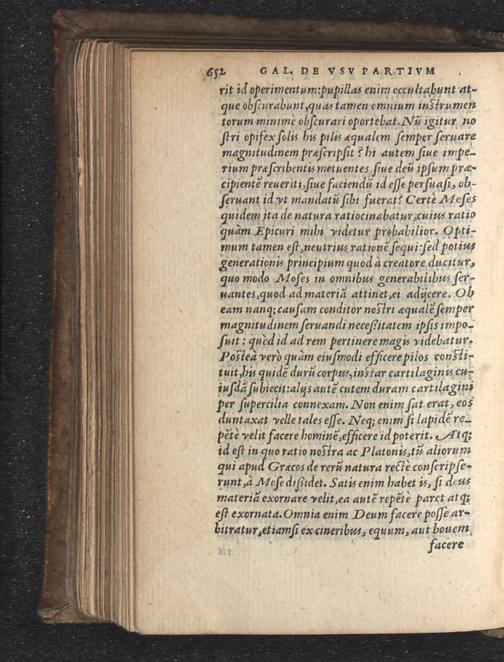 652 GAL. DE VSV PARTIVM
rit id operimentum: pupillas enim occultabunt at-
que obscurabunt, quas tamen omnium instrumen
torum minimè obscurari oportebat. Nũ igitur no
stri opifex solis his pilis æqualem semper seruare
magnitudinem præscripsit? hi autem siue impe-
rium præscribentis metuentes, siue deũ ipsum præ-
cipientē reueriti, siue faciendũ id esse persuasi, ob-
seruant id vt mandatũ sibi fuerat? Certè Moses
quidem ita de natura ratiocinabatur, cuius ratio
quàm Epicuri mihi videtur probabilior. Opti-
mum tamen est, neutrius rationē sequi: sed potius
generationis principium quod à creatore ducitur,
quo modo Moses in omnibus generabilibus ser-
uantes, quod ad materiã attinet, ei adijcere. Ob
eam nanq; causam conditor nostri æqualē semper
magnitudinem seruandi necessitatem ipsis impo-
suit: quòd id ad rem pertinere magis videbatur.
Postea verò quàm eiusmodi efficere pilos consti-
tuit, his quidē durũ corpus, instar cartilaginis cu-
iusdã subiecit: alijs autē cutem duram cartilagini
per supercilia connexam. Non enim sat erat, eos
duntaxat velle tales esse. Neq; enim si lapidē re-
pētè velit facere hominē, efficere id poterit. Atq;
id est in quo ratio nostra ac Platonis, tũ aliorum
qui apud Græcos de rerũ natura rectè conscripse-
runt, à Mose dissidet. Satis enim habet is, si deus
materiã exornare velit, ea autē repētè paret atq;
est exornata. Omnia enim Deum facere posse ar-
bitratur, etiamsi ex cineribus, equum, aut bouem
facere